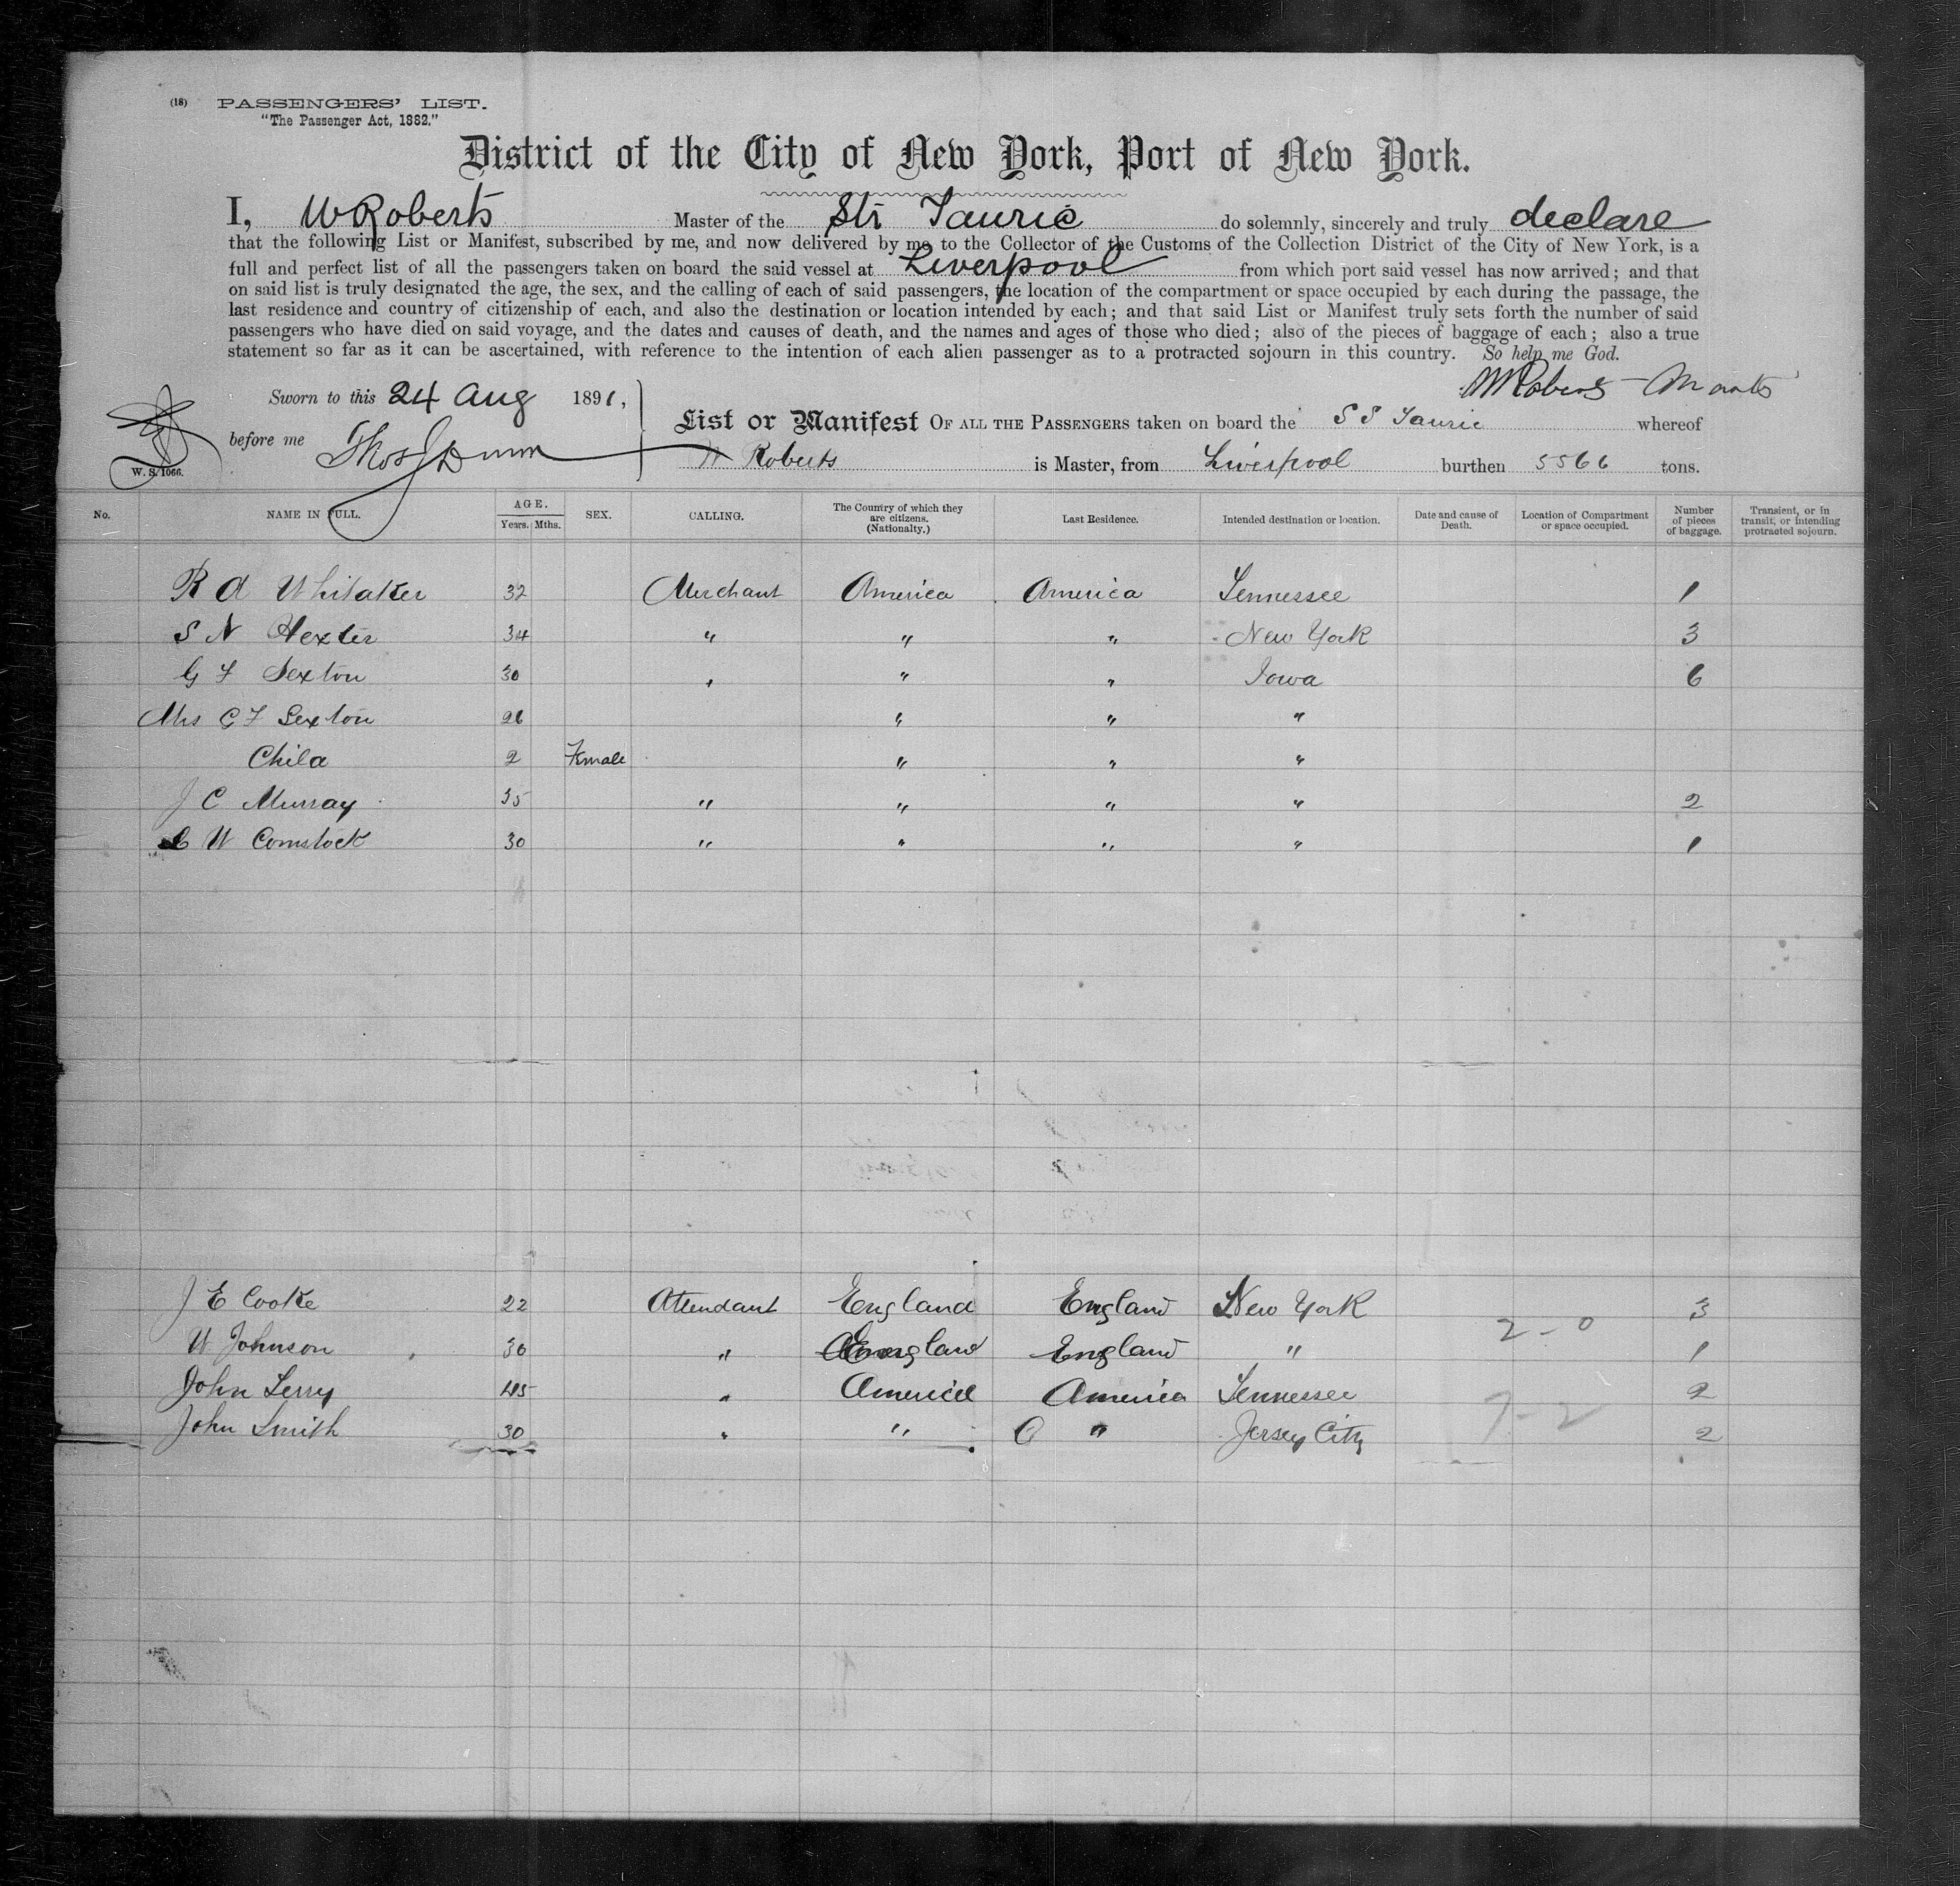 (18) PASSENGERS' LIST.
"The Passenger Act, 1882."
District of the City of New York, Port of New York.
I, W Roberts Master of the Str Tauric do solemnly, sincerely and truly declare
that the following List or Manifest, subscribed by me, and now delivered by me to the Collector of the Customs of the Collection District of the City of New York, is a
full and perfect list of all the passengers taken on board the said vessel at Liverpool from which port said vessel has now arrived; and that
on said list is truly designated the age, the sex, and the calling of each of said passengers, the location of the compartment or space occupied by each during the passage, the
last residence and country of citizenship of each, and also the destination or location intended by each; and that said List or Manifest truly sets forth the number of said
passengers who have died on said voyage, and the dates and causes of death, and the names and ages of those who died; also of the pieces of baggage of each; also a true
statement so far as it can be ascertained, with reference to the intention of each alien passenger as to a protracted sojourn in this country. So help me God.
Sworn to this 24 Aug 1891, W Roberts
before me Thos J Dunn
W. S. 1066.
List or Manifest OF ALL THE PASSENGERS taken on board the S S Tauric whereof
W Roberts is Master, from Liverpool burthen 5566 tons.
No. NAME IN FULL. AGE. Years. Mths. SEX. CALLING. The Country of which they are citizens. (Nationalty.) Last Residence. Intended destination or location. Date and cause of Death. Location of Compartment or space occupied. Number of pieces of baggage. Transient, or in transit, or intending protracted sojourn.
R A Whitaker 32 Merchant America America Tennessee 1
S N Hexter 34 " " " New York 3
G F Sexton 30 " " " Iowa 6
Mrs G F Sexton 26 " " "
Child 2 Female " " "
J C Murray 35 " " " " 2
C W Comstock 30 " " " " 1
J E Cooke 22 Attendant England England New York 3
2-0
W Johnson 30 " England England " 1
John Terry 45 " America America Tennessee 2
7-2
John Smith 30 " " " Jersey City 2